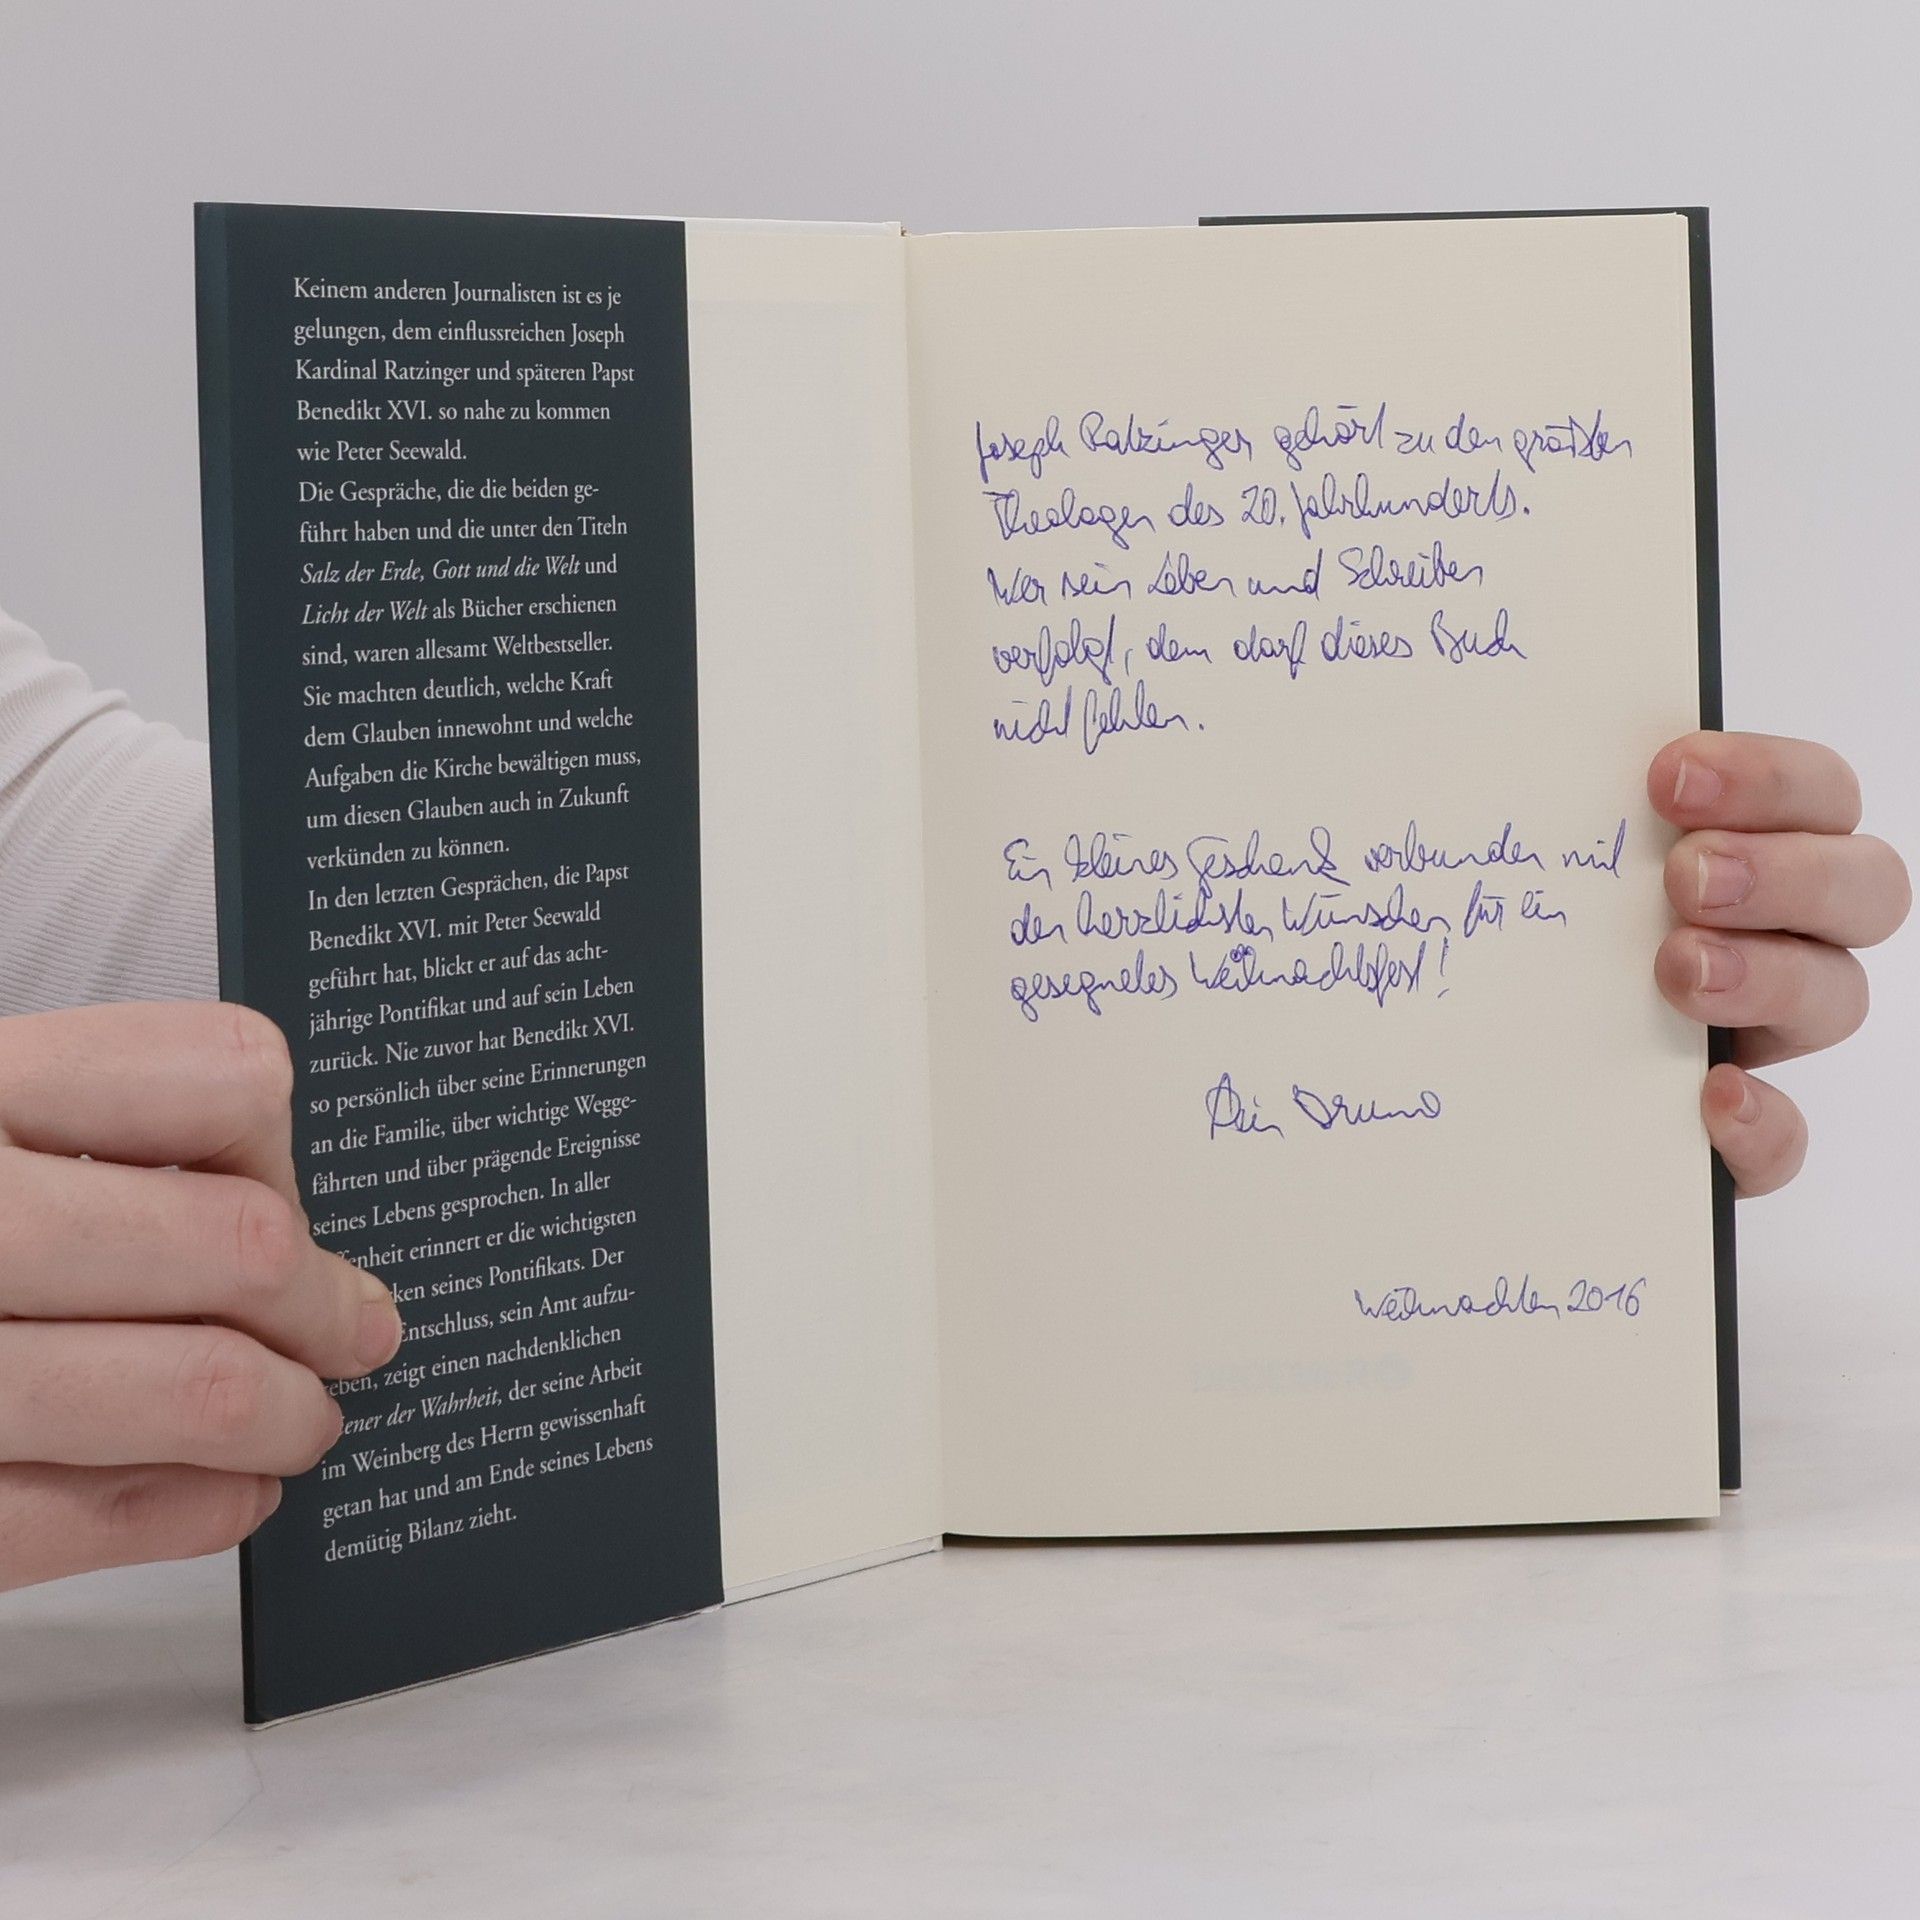 Keinem anderen Journalisten ist es je
gelungen, dem einflussreichen Joseph
Kardinal Ratzinger und späteren Papst
Benedikt XVI. so nahe zu kommen
wie Peter Seewald.
Die Gespräche, die die beiden ge-
führt haben und die unter den Titeln
Salz der Erde, Gott und die Welt und
Licht der Welt als Bücher erschienen
sind, waren allesamt Weltbestseller.
Sie machten deutlich, welche Kraft
dem Glauben innewohnt und welche
Aufgaben die Kirche bewältigen muss,
um diesen Glauben auch in Zukunft
verkünden zu können.
In den letzten Gesprächen, die Papst
Benedikt XVI. mit Peter Seewald
geführt hat, blickt er auf das acht-
jährige Pontifikat und auf sein Leben
zurück. Nie zuvor hat Benedikt XVI.
so persönlich über seine Erinnerungen
an die Familie, über wichtige Wegge-
fährten und über prägende Ereignisse
seines Lebens gesprochen. In aller
enheit erinnert er die wichtigsten
ken seines Pontifikats. Der
Entschluss, sein Amt aufzu-
eben, zeigt einen nachdenklichen
iener der Wahrheit, der seine Arbeit
im Weinberg des Herrn gewissenhaft
getan hat und am Ende seines Lebens
demütig Bilanz zieht.
Joseph Ratzinger gehört zu den größten
Theologen des 20. Jahrhunderts.
Wer sein Leben und Schreiben
verfolgt, dem darf dieses Buch
nicht fehlen.
Ein kleines Geschenk verbunden mit
den herzlichsten Wünschen für ein
gesegnetes Weihnachtsfest!
Dein Bruno
Weihnachten 2016